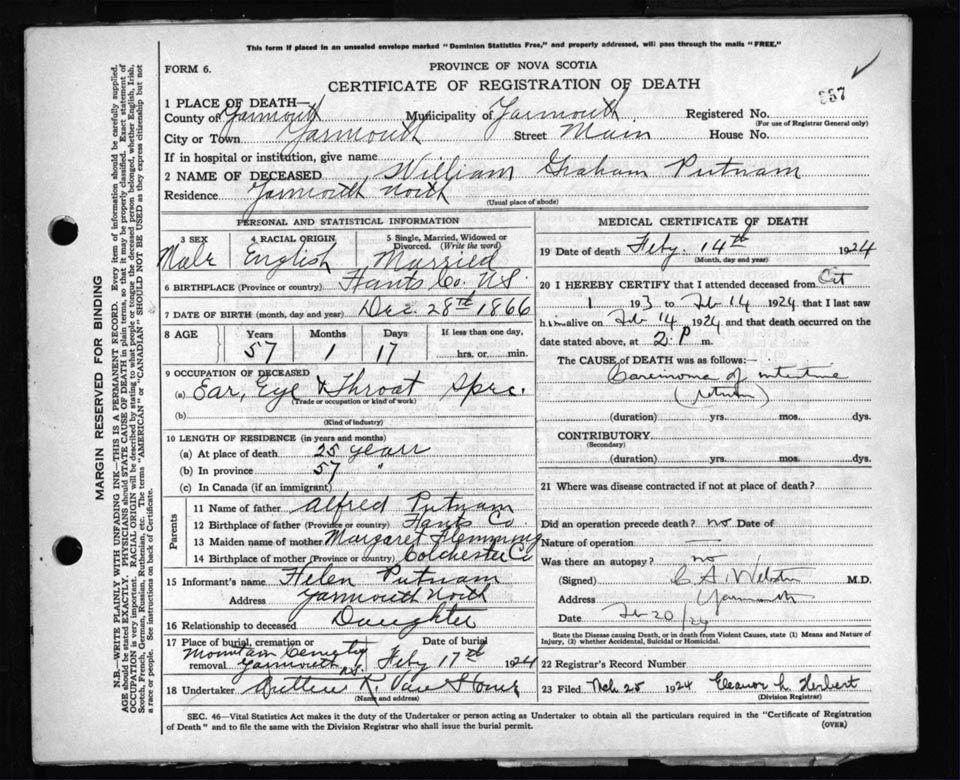 This form if placed in an unsealed envelope marked "Dominion Statistics Free," and properly addressed, will pass through the mails "FREE."
FORM 6.
PROVINCE OF NOVA SCOTIA
CERTIFICATE OF REGISTRATION OF DEATH
1 PLACE OF DEATH—
County of Yarmouth Municipality of Yarmouth Registered No.
(For use of Registrar General only)
City or Town Yarmouth Street Main House No.
If in hospital or institution, give name
2 NAME OF DECEASED William Graham Putnam
Residence Yarmouth North
(Usual place of abode)
PERSONAL AND STATISTICAL INFORMATION
3 SEX 4 RACIAL ORIGIN 5 Single, Married, Widowed or Divorced. (Write the word)
Male English Married
6 BIRTHPLACE (Province or country) Hants Co. N.S.
7 DATE OF BIRTH (month, day and year) Dec. 28th 1866
8 AGE Years Months Days If less than one day,
57 1 17 hrs. or min.
9 OCCUPATION OF DECEASED
(a) Ear, Eye & Throat Spec.
(Trade or occupation or kind of work)
(b)
(Kind of industry)
10 LENGTH OF RESIDENCE (in years and months)
(a) At place of death 25 years
(b) In province 57 "
(c) In Canada (if an immigrant)
Parents
11 Name of father Alfred Putnam
12 Birthplace of father (Province or country) Hants Co.
13 Maiden name of mother Margaret Flemming
14 Birthplace of mother (Province or country) Colchester Co
15 Informant's name Helen Putnam
Address Yarmouth North
16 Relationship to deceased Daughter
17 Place of burial, cremation or removal Date of burial
Mountain Cemetry
Yarmouth N.S. Feby 17th 1924
18 Undertaker K. Van
(Name and address)
MEDICAL CERTIFICATE OF DEATH
19 Date of death Feby. 14th 1924
(Month, day and year)
20 I HEREBY CERTIFY that I attended deceased from
1 193 to Feb 14 1924 that I last saw
him alive on Feb 14 1924 and that death occurred on the
date stated above, at 2 P m.
The CAUSE of DEATH was as follows:—
Carcinoma of intestine
(duration) yrs. mos. dys.
CONTRIBUTORY
(Secondary)
(duration) yrs. mos. dys.
21 Where was disease contracted if not at place of death?
Did an operation precede death? no Date of
Nature of operation —
Was there an autopsy? no
(Signed) C A Webster M.D.
Address Yarmouth
Date Feb 20/24
State the Disease causing Death, or in death from Violent Causes, state (1) Means and Nature of
Injury, (2) whether Accidental, Suicidal or Homicidal.
22 Registrar's Record Number
23 Filed 25 1924 Eleanor L. Herbert
(Division Registrar)
SEC. 46—Vital Statistics Act makes it the duty of the Undertaker or person acting as Undertaker to obtain all the particulars required in the "Certificate of Registration
of Death" and to file the same with the Division Registrar who shall issue the burial permit.
(OVER)
MARGIN RESERVED FOR BINDING
N.B.—WRITE PLAINLY WITH UNFADING INK—THIS IS A PERMANENT RECORD. Every item of information should be carefully supplied.
AGE should be stated EXACTLY. PHYSICIANS should STATE CAUSE OF DEATH in plain terms, so that it may be properly classified. Exact statement of
OCCUPATION is very important. RACIAL ORIGIN will be described by stating to what people or tongue the deceased person belonged, whether English, Irish,
Scotch, French, German, Russian, Ruthenian, etc. The terms "AMERICAN" or "CANADIAN" SHOULD NOT BE USED as they express citizenship but not
a race or people. See instructions on back of Certificate.